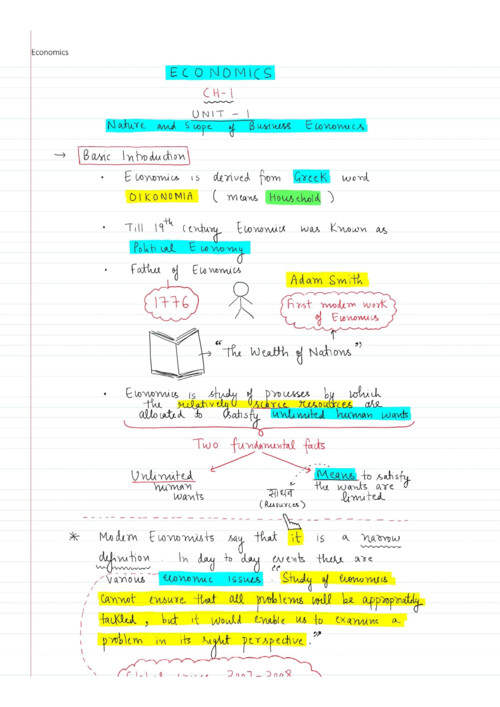 Economics
ECONOMICS
CH-1
UNIT - 1
Nature and Scope of Business Economics
→ Basic Introduction
• Economics is derived from Greek word
OIKONOMIA ( means Household )
• Till 19th century Economics was known as
Political Economy
• Father of Economics
Adam Smith
1776
First modern work
of Economics
→ "The Wealth of Nations"
• Economics is study of processes by which
the relatively scarce resources are
allocated to satisfy unlimited human wants
Two fundamental facts
Unlimited
human
wants
Means to satisfy
the wants are
limited
साधन
(Resources)
* Modern Economists say that it is a narrow
definition. In day to day events there are
various economic issues. "Study of economics
cannot ensure that all problems will be appropriately
tackled, but it would enable us to examine a
problem in its right perspective."
2007-2008